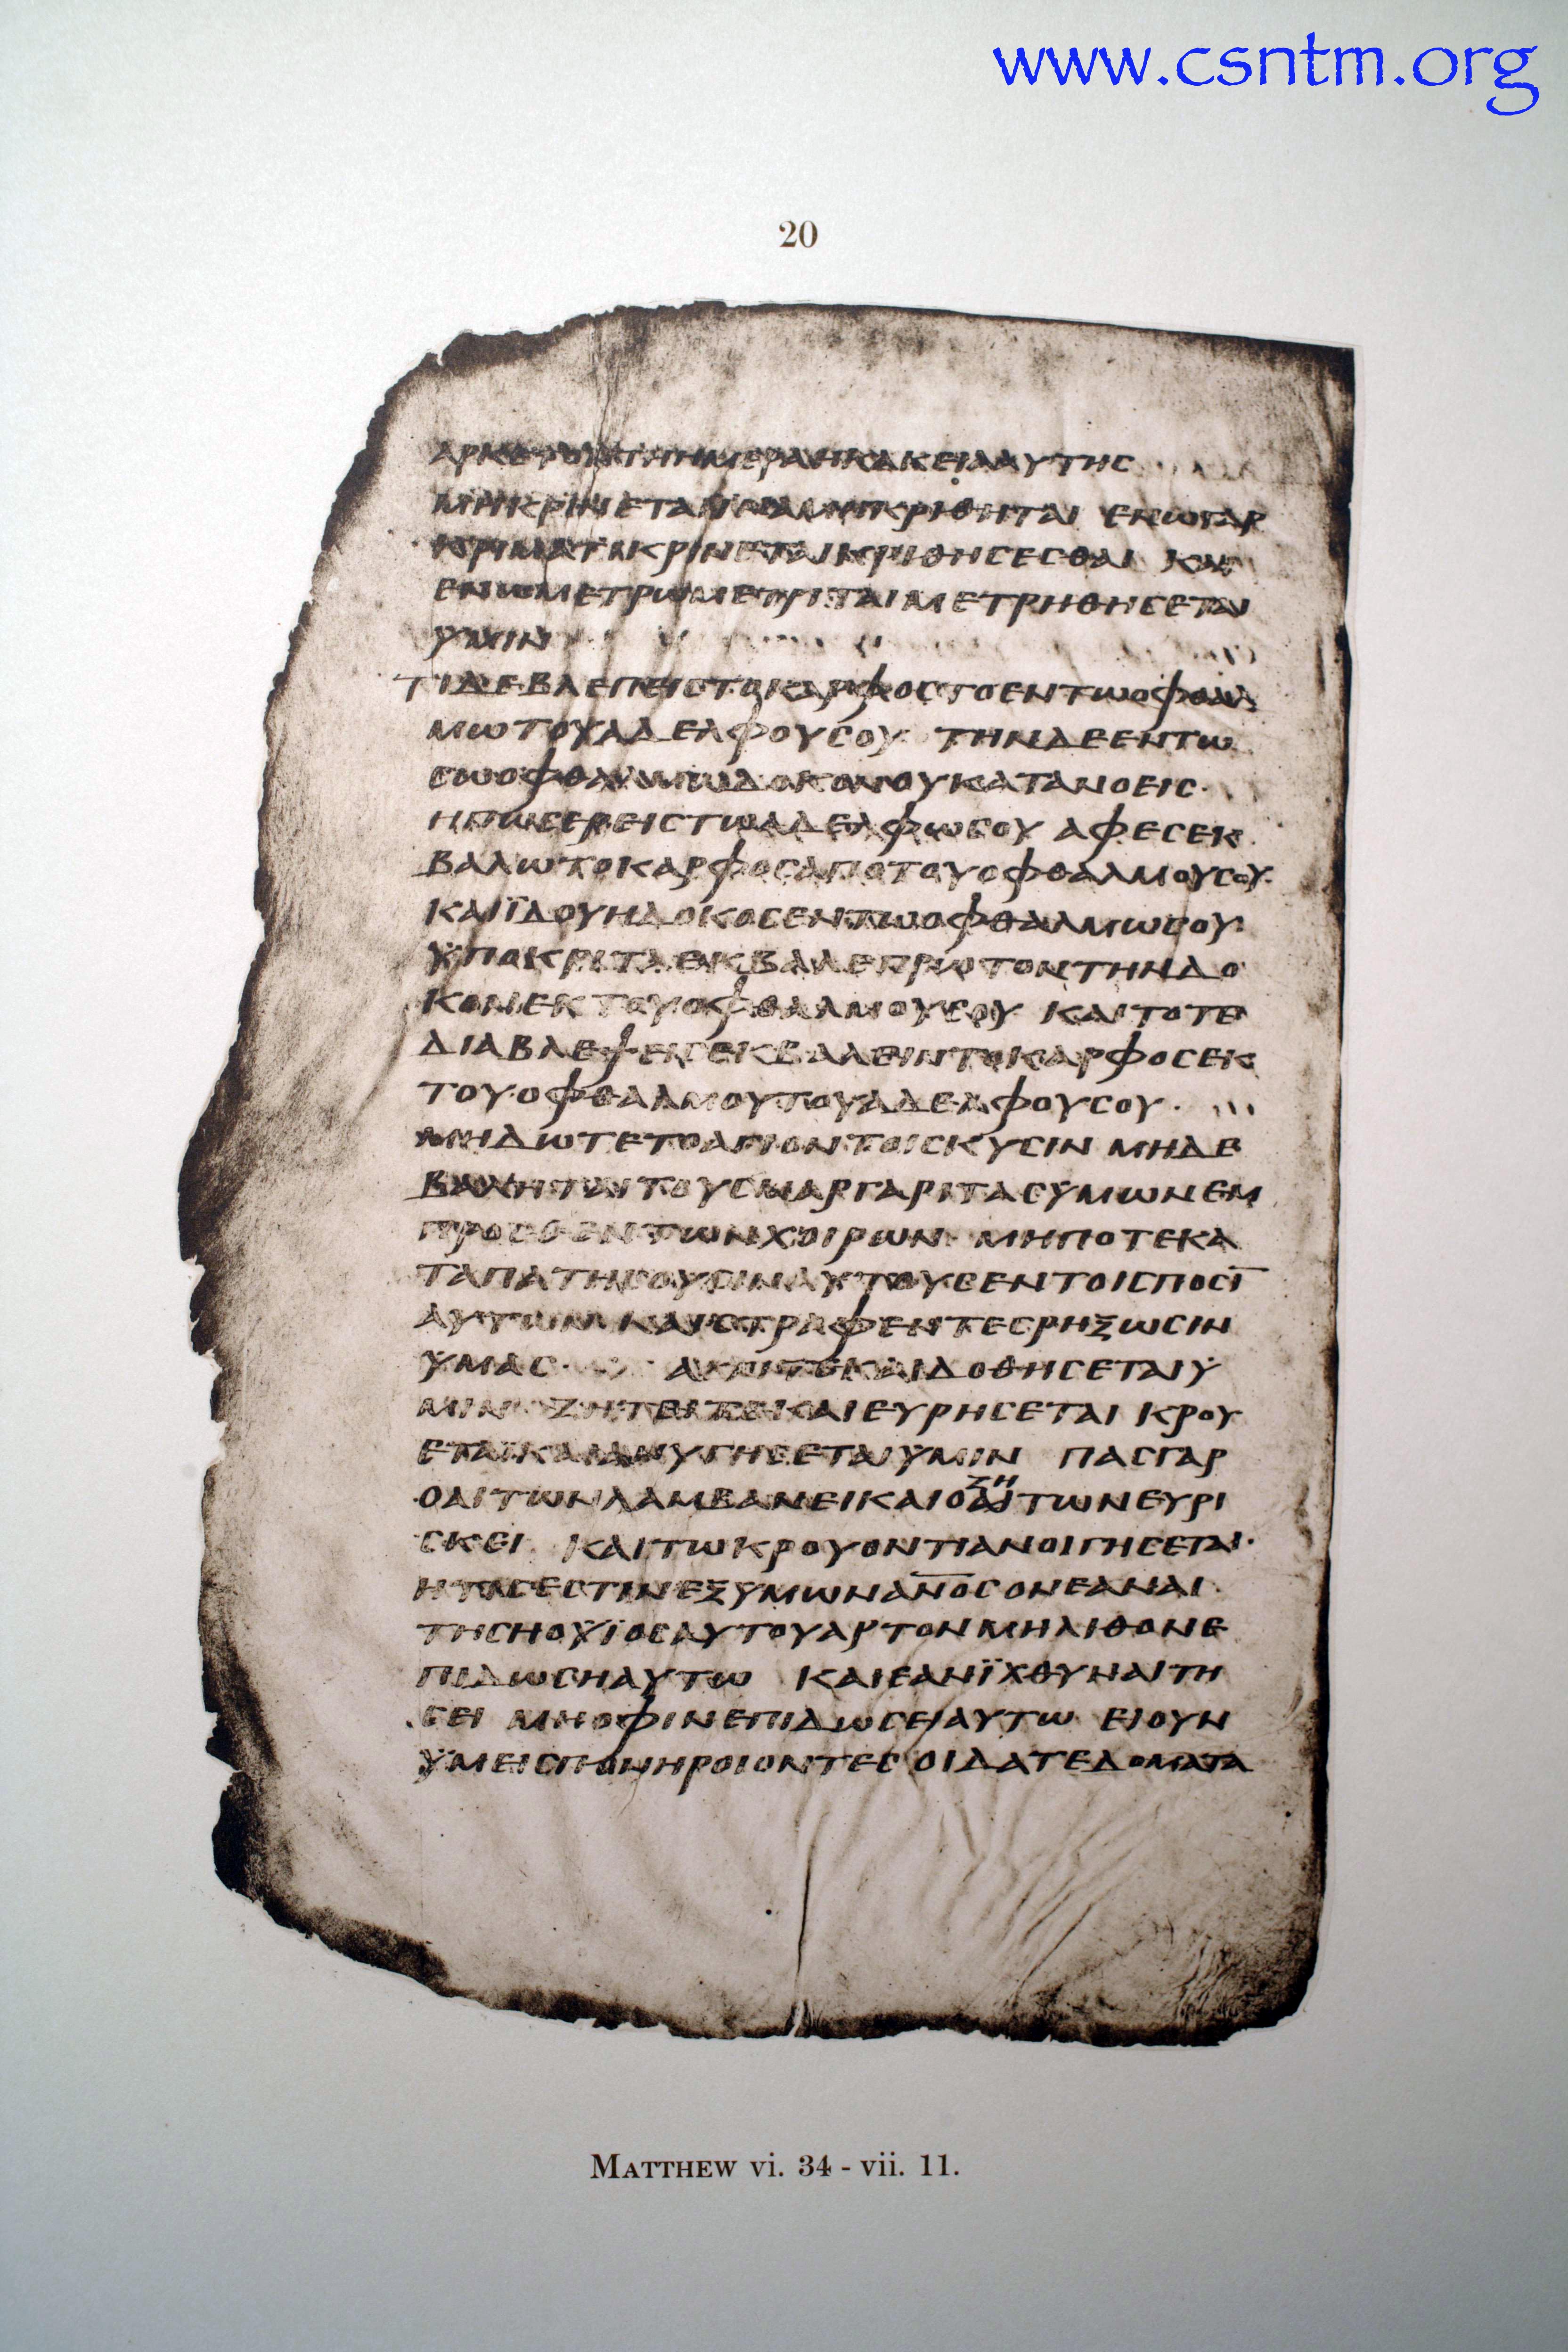 www.csntm.org
20
ΑΡΚΕΤΟΝ ΤΗ ΗΜΕΡΑ Η ΚΑΚΕΙΑ ΑΥΤΗΣ
ΜΗ ΚΡΙΝΕΤΑΙ ΙΝΑ ΜΗ ΚΡΙΘΗΤΑΙ ΕΝ Ω ΓΑΡ
ΚΡΙΜΑΤΙ ΚΡΙΝΕΤΑΙ ΚΡΙΘΗΣΕΣΘΑΙ ΚΑΙ
ΕΝ Ω ΜΕΤΡΩ ΜΕΤΡΙΤΑΙ ΜΕΤΡΗΘΗΣΕΤΑΙ
ΥΜΙΝ
ΤΙ ΔΕ ΒΛΕΠΕΙΣ ΤΟ ΚΑΡΦΟΣ ΤΟ ΕΝ ΤΩ ΟΦΘΑΛ
ΜΩ ΤΟΥ ΑΔΕΛΦΟΥ ΣΟΥ ΤΗΝ ΔΕ ΕΝ ΤΩ
ΣΩ ΟΦΘΑΛΜΩ ΔΟΚΟΝ ΟΥ ΚΑΤΑΝΟΕΙΣ
Η ΠΩΣ ΕΡΕΙΣ ΤΩ ΑΔΕΛΦΩ ΣΟΥ ΑΦΕΣ ΕΚ
ΒΑΛΩ ΤΟ ΚΑΡΦΟΣ ΑΠΟ ΤΟΥ ΟΦΘΑΛΜΟΥ ΣΟΥ
ΚΑΙ ΪΔΟΥ Η ΔΟΚΟΣ ΕΝ ΤΩ ΟΦΘΑΛΜΩ ΣΟΥ
ΫΠΟΚΡΙΤΑ ΕΚΒΑΛΕ ΠΡΩΤΟΝ ΤΗΝ ΔΟ
ΚΟΝ ΕΚ ΤΟΥ ΟΦΘΑΛΜΟΥ ΣΟΥ ΚΑΙ ΤΟΤΕ
ΔΙΑΒΛΕΨΕΙΣ ΕΚΒΑΛΕΙΝ ΤΟ ΚΑΡΦΟΣ ΕΚ
ΤΟΥ ΟΦΘΑΛΜΟΥ ΤΟΥ ΑΔΕΛΦΟΥ ΣΟΥ
ΜΗ ΔΩΤΕ ΤΟ ΑΓΙΟΝ ΤΟΙΣ ΚΥΣΙΝ ΜΗΔΕ
ΒΑΛΗΤΑΙ ΤΟΥΣ ΜΑΡΓΑΡΙΤΑΣ ΥΜΩΝ ΕΜ
ΠΡΟΣΘΕΝ ΤΩΝ ΧΟΙΡΩΝ ΜΗΠΟΤΕ ΚΑ
ΤΑΠΑΤΗΣΟΥΣΙΝ ΑΥΤΟΥΣ ΕΝ ΤΟΙΣ ΠΟΣΙ̅
ΑΥΤΩΝ ΚΑΙ ΣΤΡΑΦΕΝΤΕΣ ΡΗΞΩΣΙΝ
ΥΜΑΣ ΚΑΙ ΔΟΘΗΣΕΤΑΙ Ϋ
ΜΙΝ ΖΗΤΕΙΤΕ ΚΑΙ ΕΥΡΗΣΕΤΑΙ ΚΡΟΥ
ΕΤΑΙ ΚΑΙ ΑΝΥΓΗΣΕΤΑΙ ΥΜΙΝ ΠΑΣ ΓΑΡ
Ο ΑΙΤΩΝ ΛΑΜΒΑΝΕΙ ΚΑΙ Ο ΖΗΤΩΝ ΕΥΡΙ
ΣΚΕΙ ΚΑΙ ΤΩ ΚΡΟΥΟΝΤΙ ΑΝΟΙΓΗΣΕΤΑΙ
Η ΤΙΣ ΕΣΤΙΝ ΕΞ ΥΜΩΝ Α̅Ν̅Ο̅Σ̅ ΟΝ ΕΑΝ ΑΙ
ΤΗΣΗ Ο ΫΪΟΣ ΑΥΤΟΥ ΑΡΤΟΝ ΜΗ ΛΙΘΟΝ Ε
ΠΙΔΩΣΗ ΑΥΤΩ ΚΑΙ ΕΑΝ ΪΧΘΥΝ ΑΙΤΗ
ΣΕΙ ΜΗ ΟΦΙΝ ΕΠΙΔΩΣΕΙ ΑΥΤΩ ΕΙ ΟΥΝ
ΫΜΕΙΣ ΠΟΝΗΡΟΙ ΟΝΤΕΣ ΟΙΔΑΤΕ ΔΟΜΑΤΑ
MATTHEW vi. 34 - vii. 11.